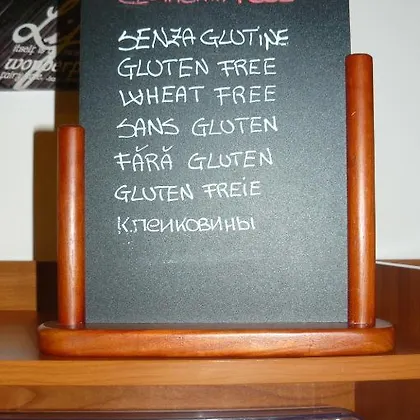 SENZA GLUTINE
GLUTEN FREE
WHEAT FREE
SANS GLUTEN
FĂRĂ GLUTEN
GLUTEN FREIE
К.ПЕЙКОВИНЫ